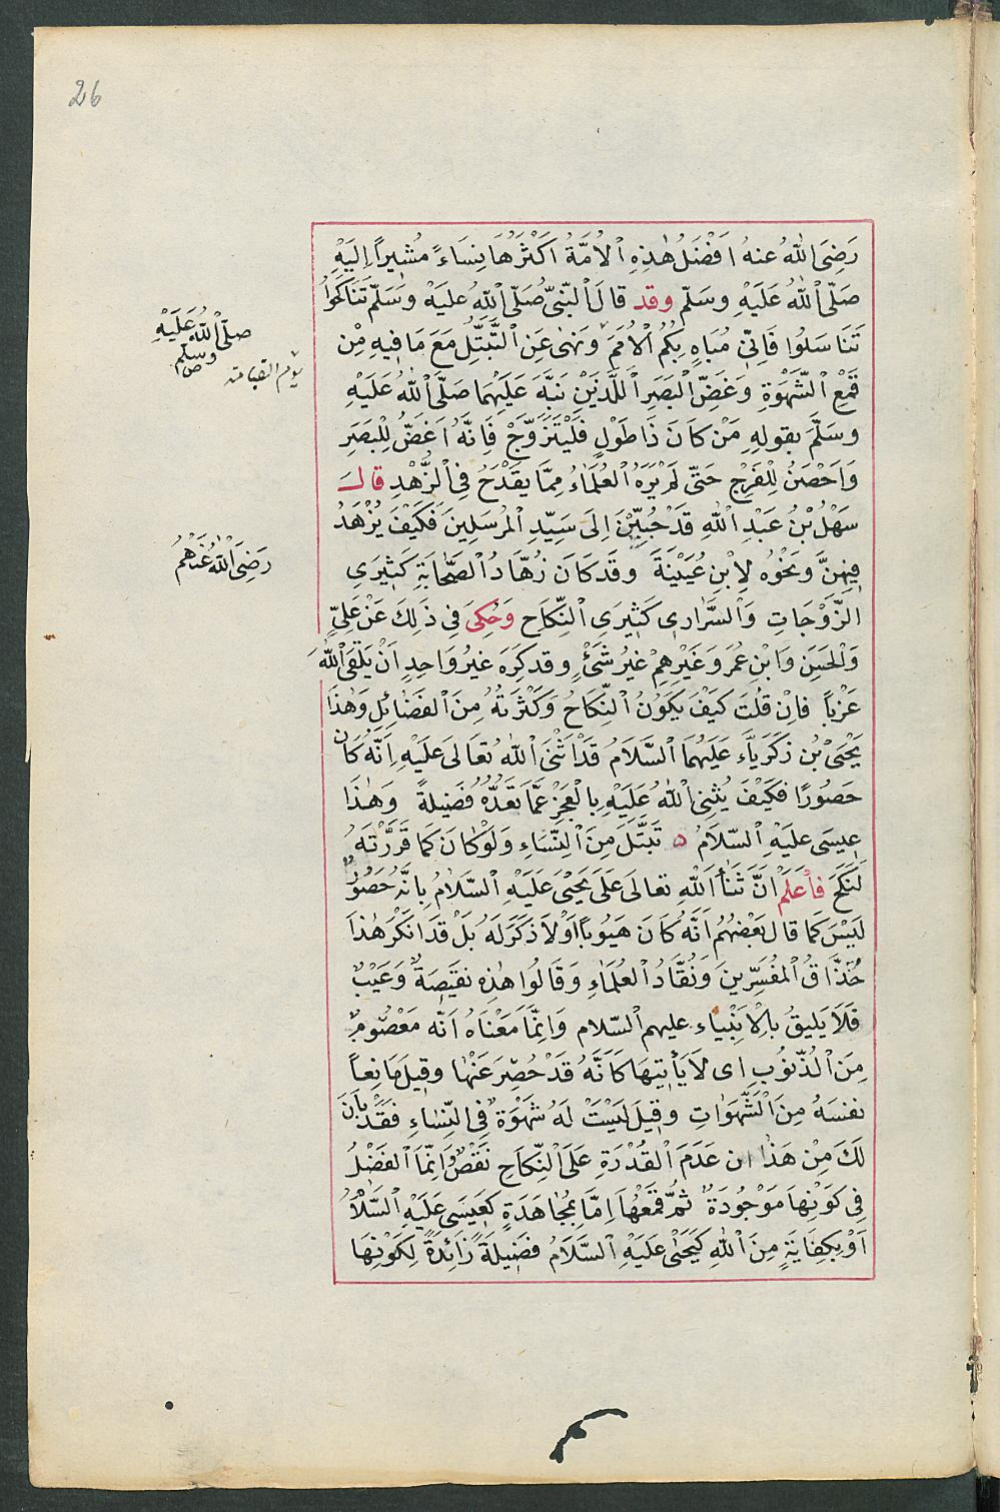 26
رَضِىَ اللّٰهُ عنهُ اَفْضَلُ هٰذِهِ الْاُمَّةُ اَكْثَرُهَا نِسَاءً مُشِيراً اِلَيْهِ
صَلّى اللّٰهُ عَلَيْهِ وسَلّم وقد قالَ النّبىُّ صَلّى اللّٰهُ عليْهِ وَسَلّم تَنَاكَحُوا
تَنَاسَلُوا فَاِنّى مُبَاهٍ بِكُمُ الْاُمَمَ وَنهٰى عَنِ التَّبَتُّلِ مَعَ مَا فِيهِ مِن
قَمْعِ الشَّهْوَةِ وَغَضِّ البَصَرِ اللَّذَيْنِ نَبَّهَ عَلَيْهِمَا صَلَّى اللّٰهُ عَلَيْهِ
وسَلَّمَ بقولِهِ مَنْ كانَ ذَا طَوْلٍ فَلْيَتَزَوَّجْ فَاِنَّهُ اَغَضُّ لِلْبَصَرِ
وَاَحْصَنُ لِلْفَرْجِ حَتّى لَمْ يَرَهُ الْعُلَمَاءُ مِمَّا يَقْدَحُ فِى الزُّهْدِ قالَ
سَهْلُ بْنُ عَبْدِ اللّٰهِ قَدْ حُبِّبْنَ اِلَى سَيِّدِ الْمُرسَلِينَ فَكَيْفَ يُزْهَدُ
فِيهِنَّ وَنَحْوُه لِابْنِ عُيَيْنَةَ وقَدْ كانَ زُهّادُ الصَّحَابَةِ كَثِيرَىِ
الزَّوْجَاتِ وَالسَّرَارِى كَثِيرَىِ النِّكَاحِ وَحُكِىَ فِى ذَلِكَ عَنْ عَلِىٍّ
وَالحَسَنِ وَابْنِ عُمَرَ وَغَيْرِهِمْ غَيْرُ شَىْءٍ وقد كَرِهَ غيرُ وَاحِدٍ اَنْ يَلْقَى اللّٰهَ
عَزَباً فاِنْ قلْتَ كَيْفَ يَكُونُ النِّكَاحُ وَكَثْرَتُهُ مِنَ الفَضَائِلِ وَهٰذَا
يَحْيَى بْن زَكَرِيَّاءَ عَلَيْهِمَا السَّلَامُ قَدْ اَثْنَى اللّٰهُ تَعَالَى عَلَيْهِ اَنَّهُ كَانَ
حَصُورًا فَكَيْفَ يُثْنِى اللّٰهُ عَلَيْهِ بِالْعَجْزِ عَمَّا تَعُدُّهُ فَضِيلةً وَهٰذَا
عِيسَى عليْهِ السَّلَامُ ه تَبَتَّلَ مِنَ النِّسَاءِ وَلَوْ كانَ كَما قَرَّرْتَهُ
لَنَكَحَ فاعْلَمْ اَنَّ ثَنَاءَ اللّٰهِ تعالَى عَلَى يَحْيَى عَلَيْهِ السّلَامُ بِانّهُ حَصُورٌ
لَيْسَ كَمَا قال بَعْضُهُمْ اَنَّهُ كَانَ هَيُوباً اَوْ لَا ذَكَرَ لَهُ بَلْ قَدْ اَنكَرَ هٰذَا
حُذَّاقُ الْمُفَسِّرِينَ وَنُقَّادُ العُلَمَاءِ وَقَالُوا هٰذِهِ نَقيصَةٌ وَعَيْبٌ
فَلَا يَلِيقُ بِالْاَنْبِيَاءِ عليهم السّلام وَاِنّمَا مَعْنَاهُ اَنّه مَعْصُومٌ
مِنَ الذّنُوبِ اى لَا يَأتِيهَا كَاَنَّهُ قَدْ حُصِرَ عَنْهَا وقِيلَ مَانِعاً
نفسَهُ مِنَ الشَّهَوَاتِ وقيلَ لَيْسَتْ لَهُ شَهْوَةٌ فِى النِّسَاءِ فَقَدْ بَانَ
لَكَ مِنْ هَذَا ان عَدَمَ القُدْرَةِ عَلَى النِّكَاحِ نَقْصٌ وَاِنّمَا الفَضْلُ
فِى كَوْنِهَا مَوْجُودَةً ثُمَّ قَمْعُهَا اِمَّا بِمُجَاهَدَةٍ كَعِيسَى عَلَيْهِ السَّلَامُ
اَوْ بِكِفَايَةٍ مِنَ اللّٰهِ كَيَحْيَى عَلَيْهِ السَّلَامُ فضِيلَةً زَائِدَةً لِكَوْنِهَا
صلّى اللّٰهُ عَلَيْهِ
وسلّم
ص
يوم القيامة
رَضِىَ اللّٰهُ عَنْهُمْ